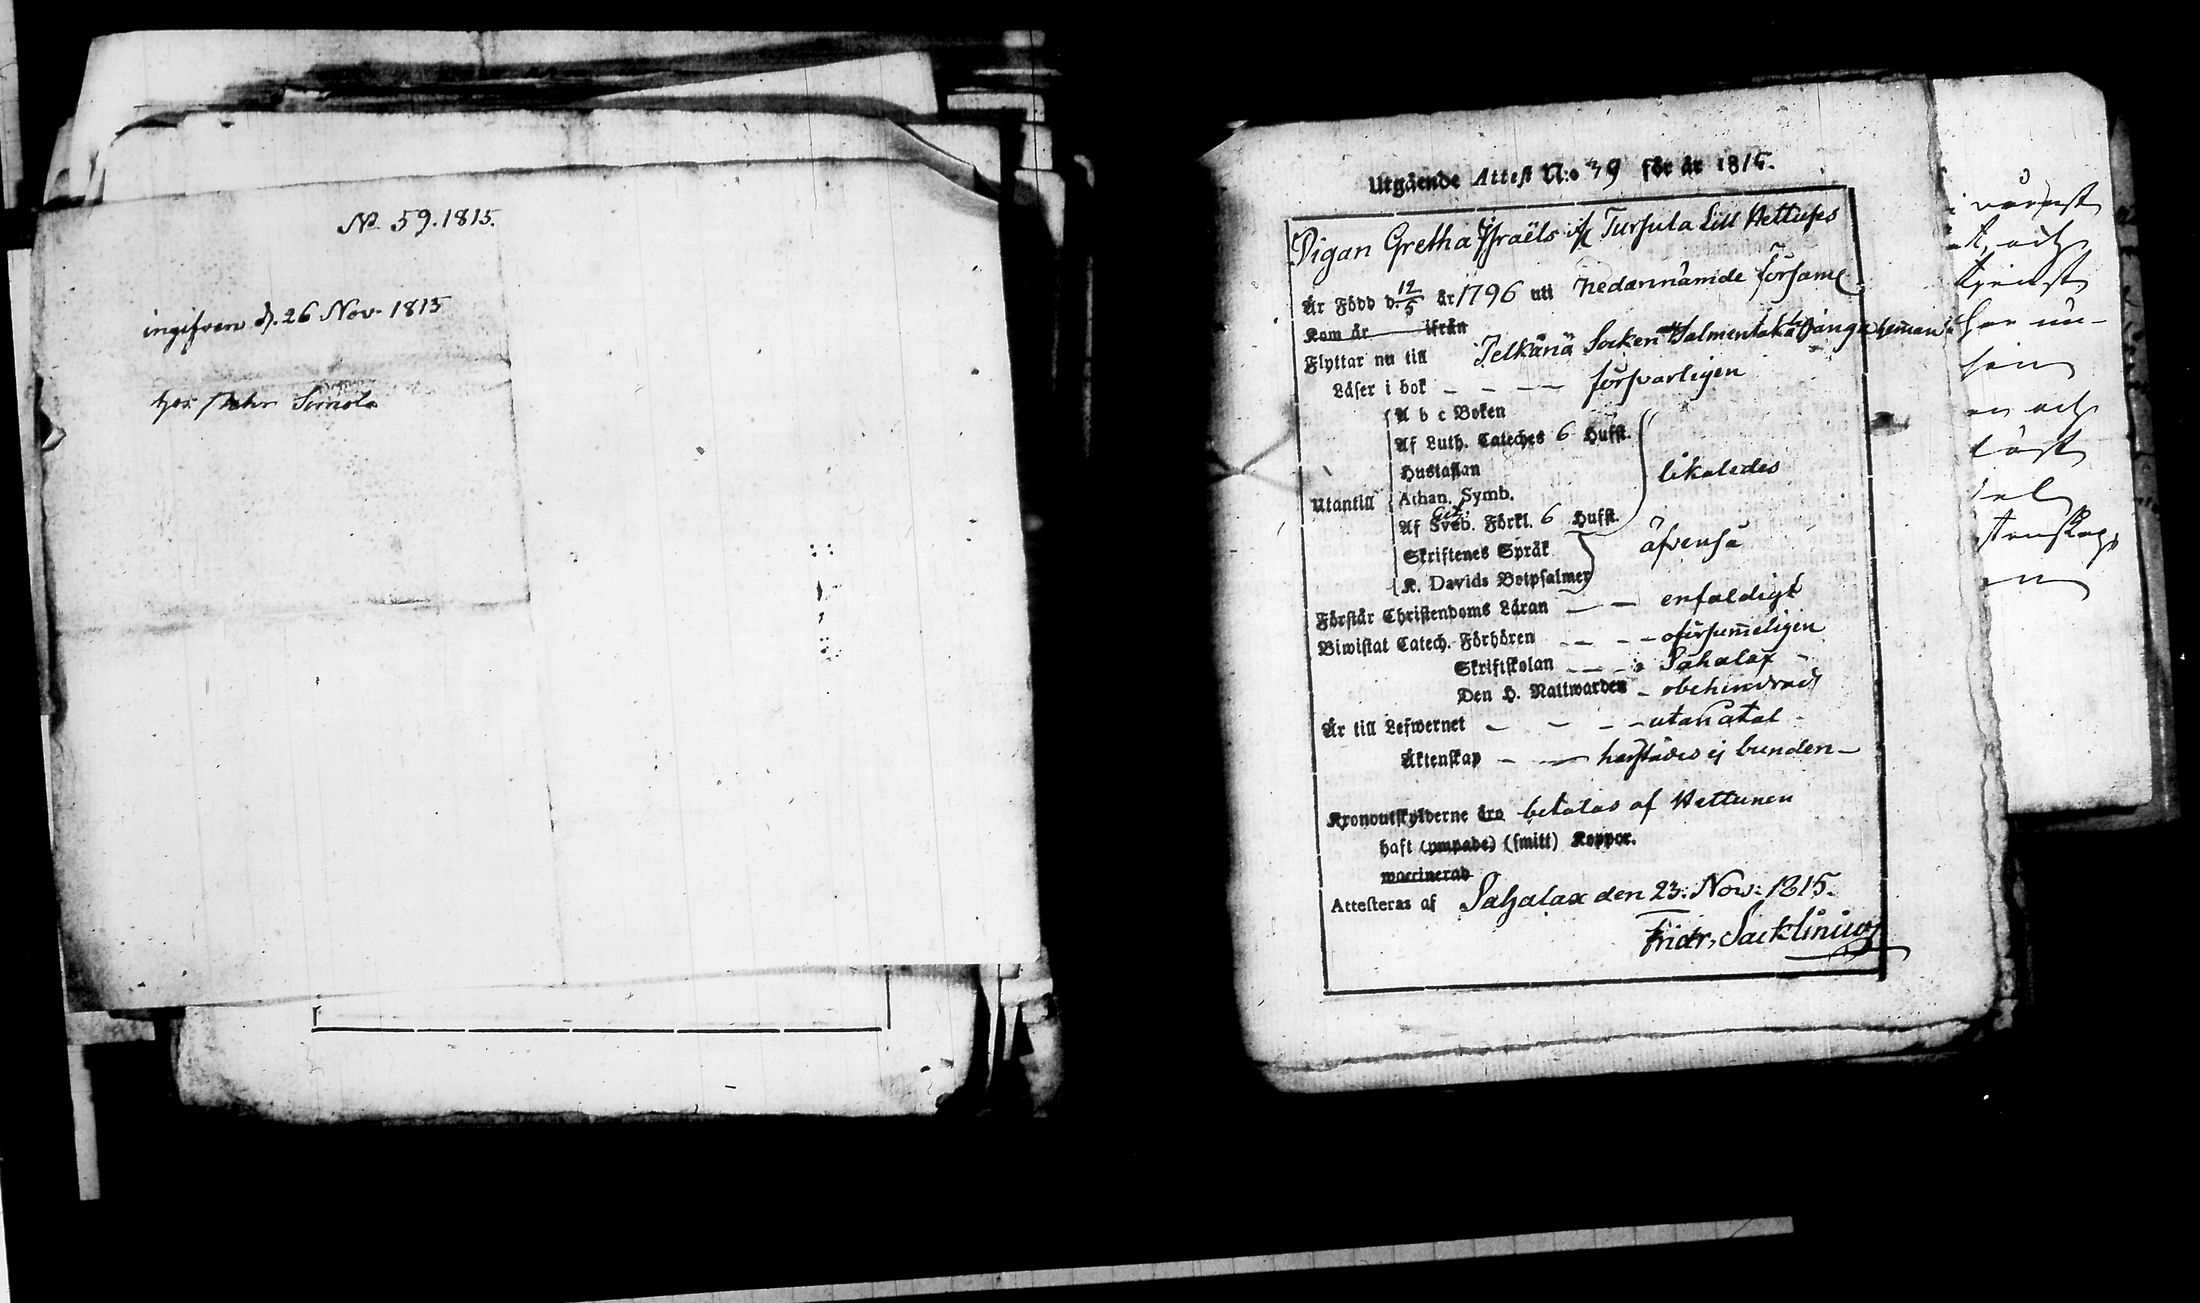 No. 59. 1815.
ingifven d. 26 Nov. 1815
hos Simola
Utgående Attest N:o 39 för år 1815.
Pigan Gretha Israëls if Tursula Lill Hettuses
Är Född d. 12/5 år 1796 uti nedannämde församl
Kom år ifrån
Flyttar nu till Pelkänä Socken Salmentaka
Läser i bok - - - försvarligen
Utantill
A b c Boken
Af Luth. Cateches 6 Hufst.
Hustaflan
Athan. Symb.
likaledes
Af Sveb. Förkl. 6 Hufst.
Skriftenes Språk
K. Davids Botpsalmer
äfvenså
Förstår Christendoms Läran - - enfaldigt
Biwistat Catech. Förhören - - - oförsummeligen
Skriftskolan - - - Sahalax
Den H. Nattwarden - obehindrad
Är till Lefwernet - - - - utan åtal -
Äktenskap - - härstädes ej bunden -
Kronoutskylderne äro betalas af Hettunen
haft (ympade) (smitt) Koppor.
waccinerad
Attesteras af Sahalax den 23. Nov: 1815.
Fridr. Sacklinius
och
tjenst
har un-
sin
en och
läst